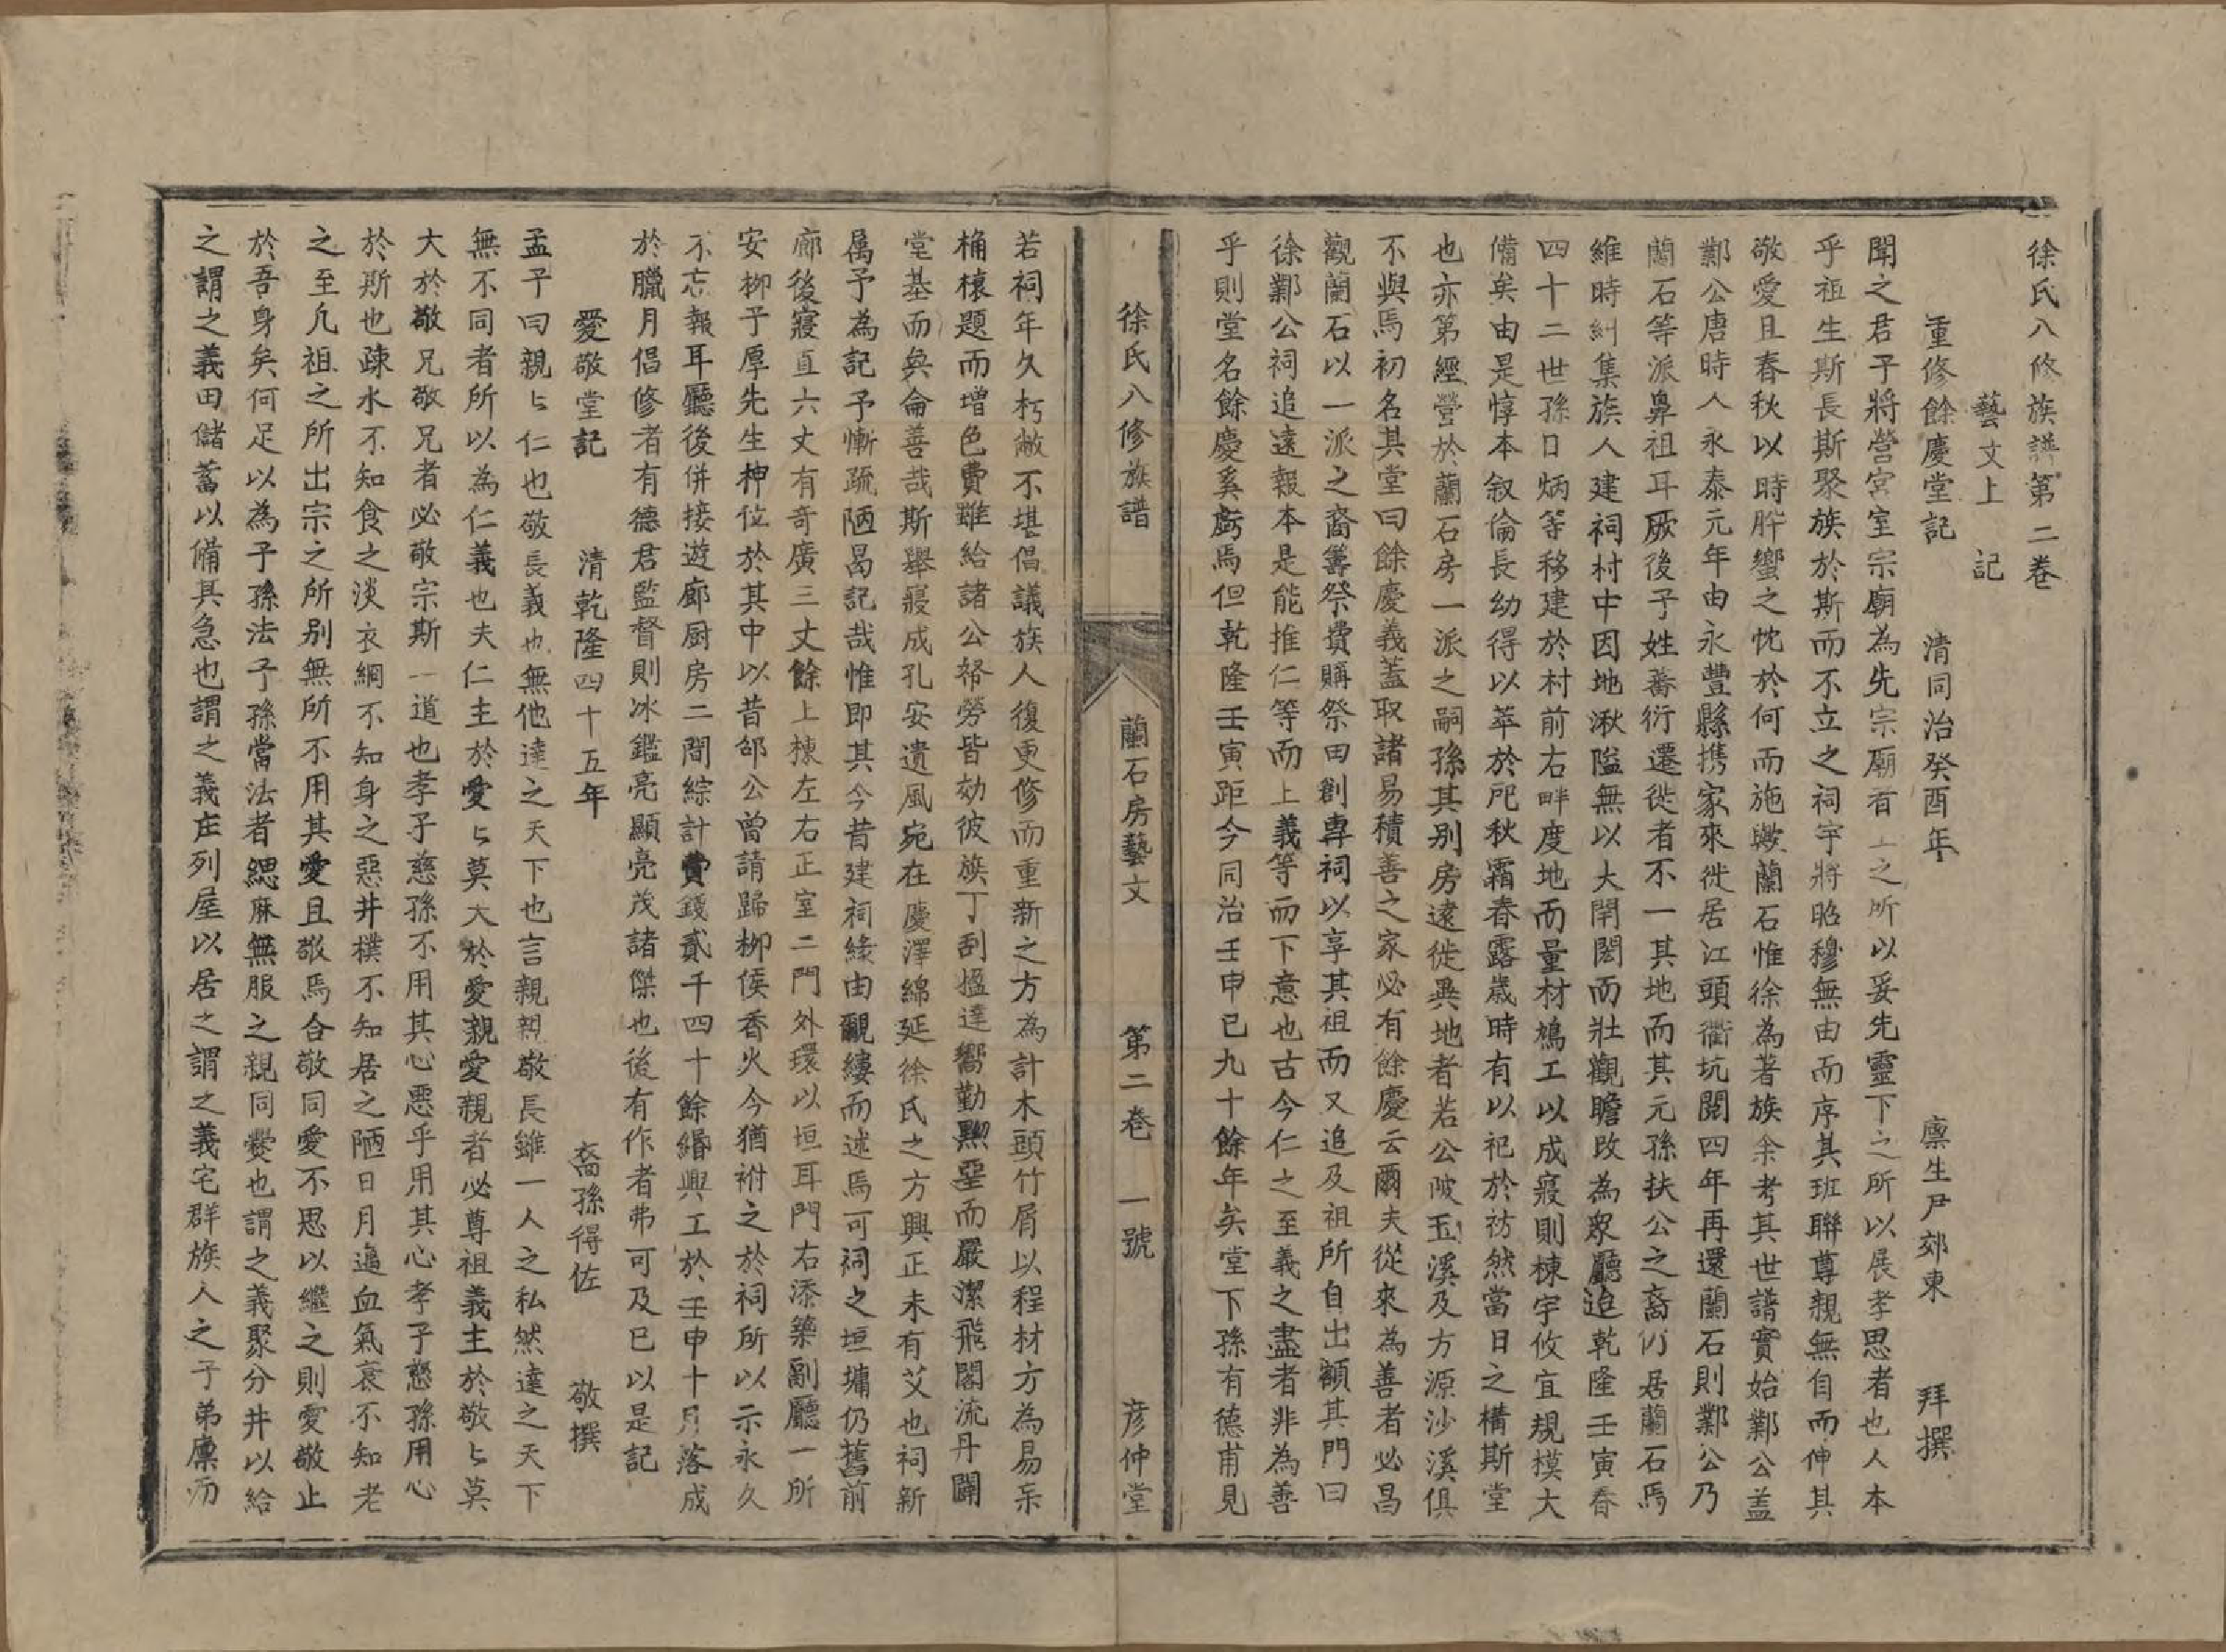 徐氏八修族譜第二卷
藝文上　記
重修餘慶堂記　清同治癸酉年　廩生尹郊東　拜撰
聞之君子將營宮室宗廟為先宗廟者上之所以妥先靈下之所以展孝思者也人本
乎祖生斯長斯聚族於斯而不立之祠宇將昭穆無由而序其班聯尊親無自而伸其
敬愛且春秋以時肸蠁之忱於何而施歟蘭石惟徐為著族余考其世譜實始鄴公盖
鄴公唐時人永泰元年由永豐縣携家來徙居江頭衢坑閱四年再還蘭石則鄴公乃
蘭石等派鼻祖耳厥後子姓蕃衍遷徙者不一其地而其元孫扶公之裔仍居蘭石焉
維時糾集族人建祠村中因地湫隘無以大閈閎而壯觀瞻改為眾廳迨乾隆壬寅春
四十二世孫曰炳等移建於村前右畔度地而量材鳩工以成寢則棟宇攸宜規模大
備矣由是惇本叙倫長幼得以萃於祀秋霜春露歲時有以祀於祊然當日之構斯堂
也亦第經營於蘭石房一派之嗣孫其别房遠徙異地者若公陂玉溪及方源沙溪俱
不與焉初名其堂曰餘慶義蓋取諸易積善之家必有餘慶云爾夫從來為善者必昌
觀蘭石以一派之裔籌祭費購祭田創專祠以享其祖而又追及祖所自出額其門曰
徐鄴公祠追遠報本是能推仁等而上義等而下意也古今仁之至義之盡者非為善
乎則堂名餘慶奚虧焉但乾隆壬寅距今同治壬申已九十餘年矣堂下孫有德甫見
徐氏八修族譜　蘭石房藝文　第二卷　一號　彦仲堂
若祠年久朽敝不堪倡議族人復更修而重新之方為計木頭竹屑以程材方為易朩
桷榱題而增色費雖給諸公帑勞皆効彼族丁刮楹達嚮勤黝堊而嚴潔飛閣流丹闢
堂基而奂侖善哉斯舉寢成孔安遺風宛在慶澤綿延徐氏之方興正未有艾也祠新
属予為記予慚疏陋曷記哉惟即其今昔建祠緣由覼縷而述焉可祠之垣墉仍舊前
廊後寢直六丈有奇廣三丈餘上棟左右正室二門外環以垣耳門右添築副廳一所
安柳子厚先生神位於其中以昔郃公曾請歸柳侯香火今猶祔之於祠所以示永久
不忘報耳廳後併接遊廊厨房二間綜計費錢貳千四十餘緡興工於壬申十月落成
於臘月倡修者有德君監督則冰鑑亮顯亮茂諸傑也後有作者弗可及已以是記
愛敬堂記　清乾隆四十五年　裔孫得佐　敬撰
孟子曰親ヒ仁也敬長義也無他達之天下也言親親敬長雖一人之私然達之天下
無不同者所以為仁義也夫仁主於愛ヒ莫大於愛親愛親者必尊祖義主於敬ヒ莫
大於敬兄敬兄者必敬宗斯一道也孝子慈孫不用其心悪乎用其心孝子慈孫用心
於斯也疎水不知食之淡衣綱不知身之惡井樸不知居之陋日月邁血氣衰不知老
之至凡祖之所出宗之所别無所不用其愛且敬焉合敬同愛不思以繼之則愛敬止
於吾身矣何足以為子孫法子孫當法者緦麻無服之親同爨也謂之義聚分井以給
之謂之義田儲蓄以備其急也謂之義庄列屋以居之謂之義宅群族人之子弟廩而